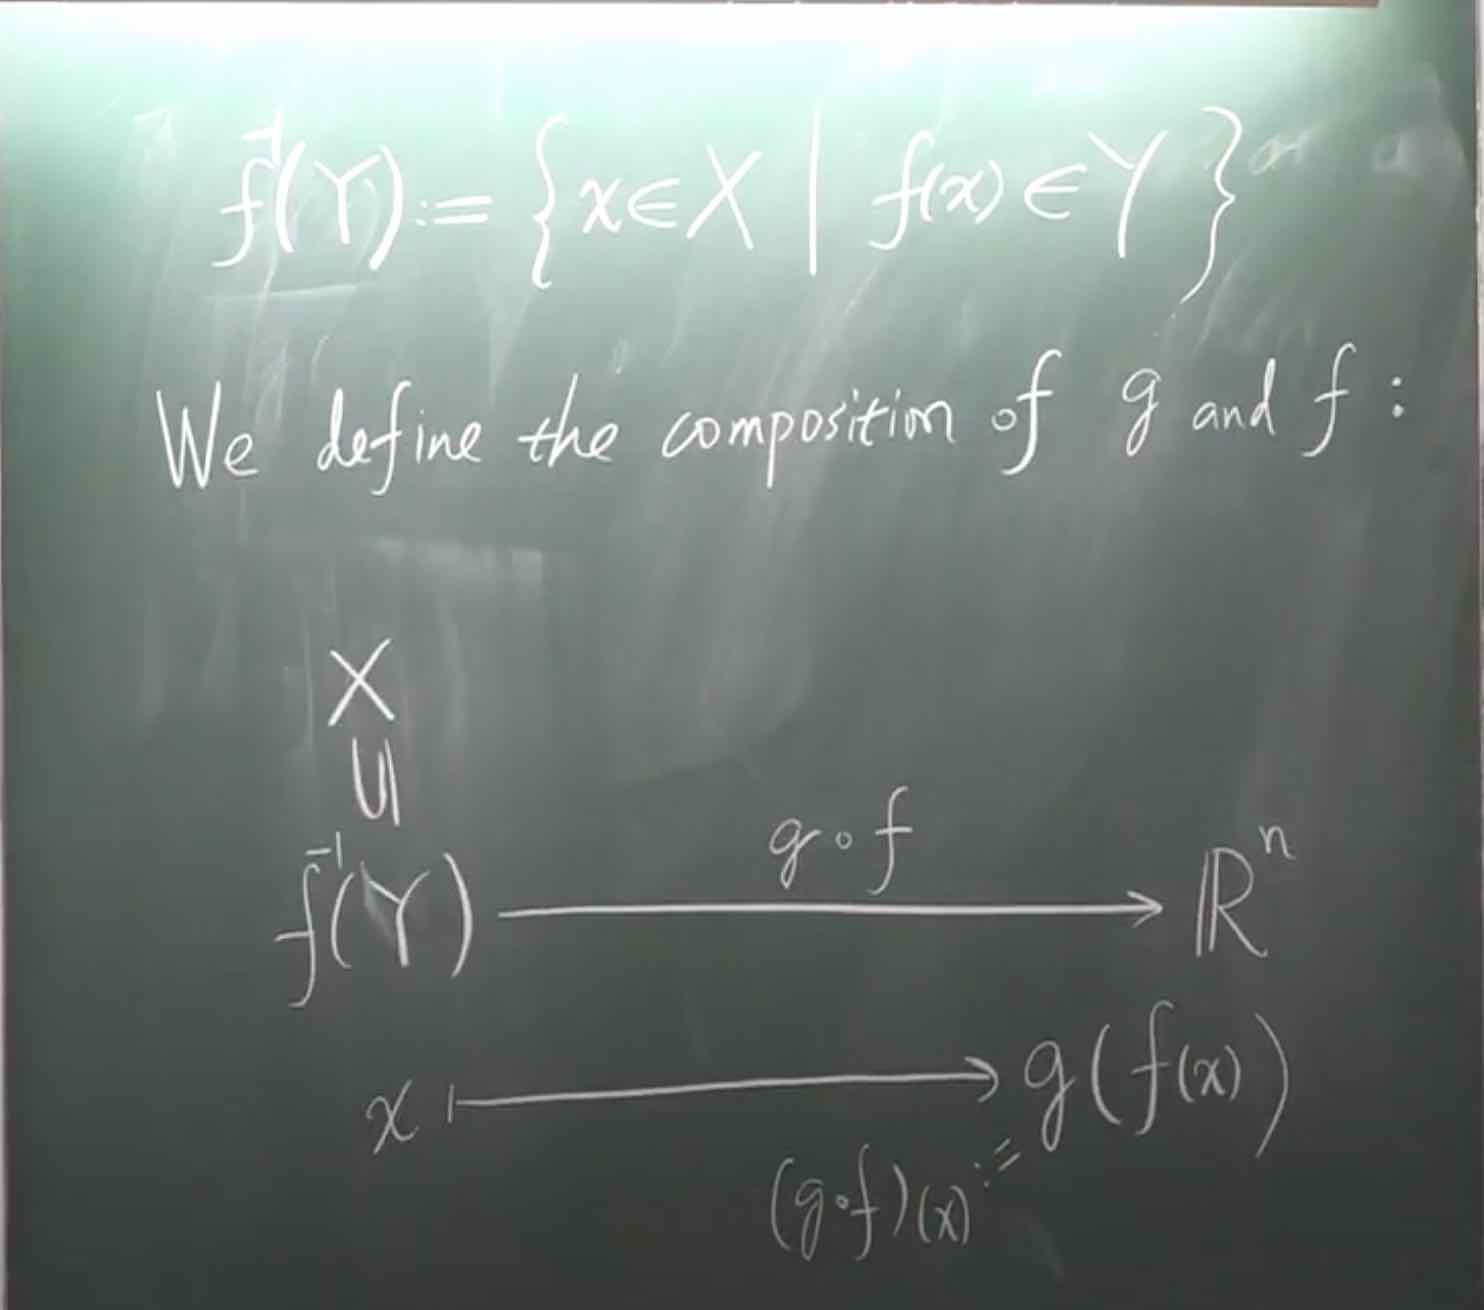 f⁻¹(Y) := {x∈X | f(x)∈Y}
We define the composition of g and f :
X
∪|
f⁻¹(Y) ⟶ ℝⁿ
g∘f
x ⟼ g(f(x))
(g∘f)(x) :=